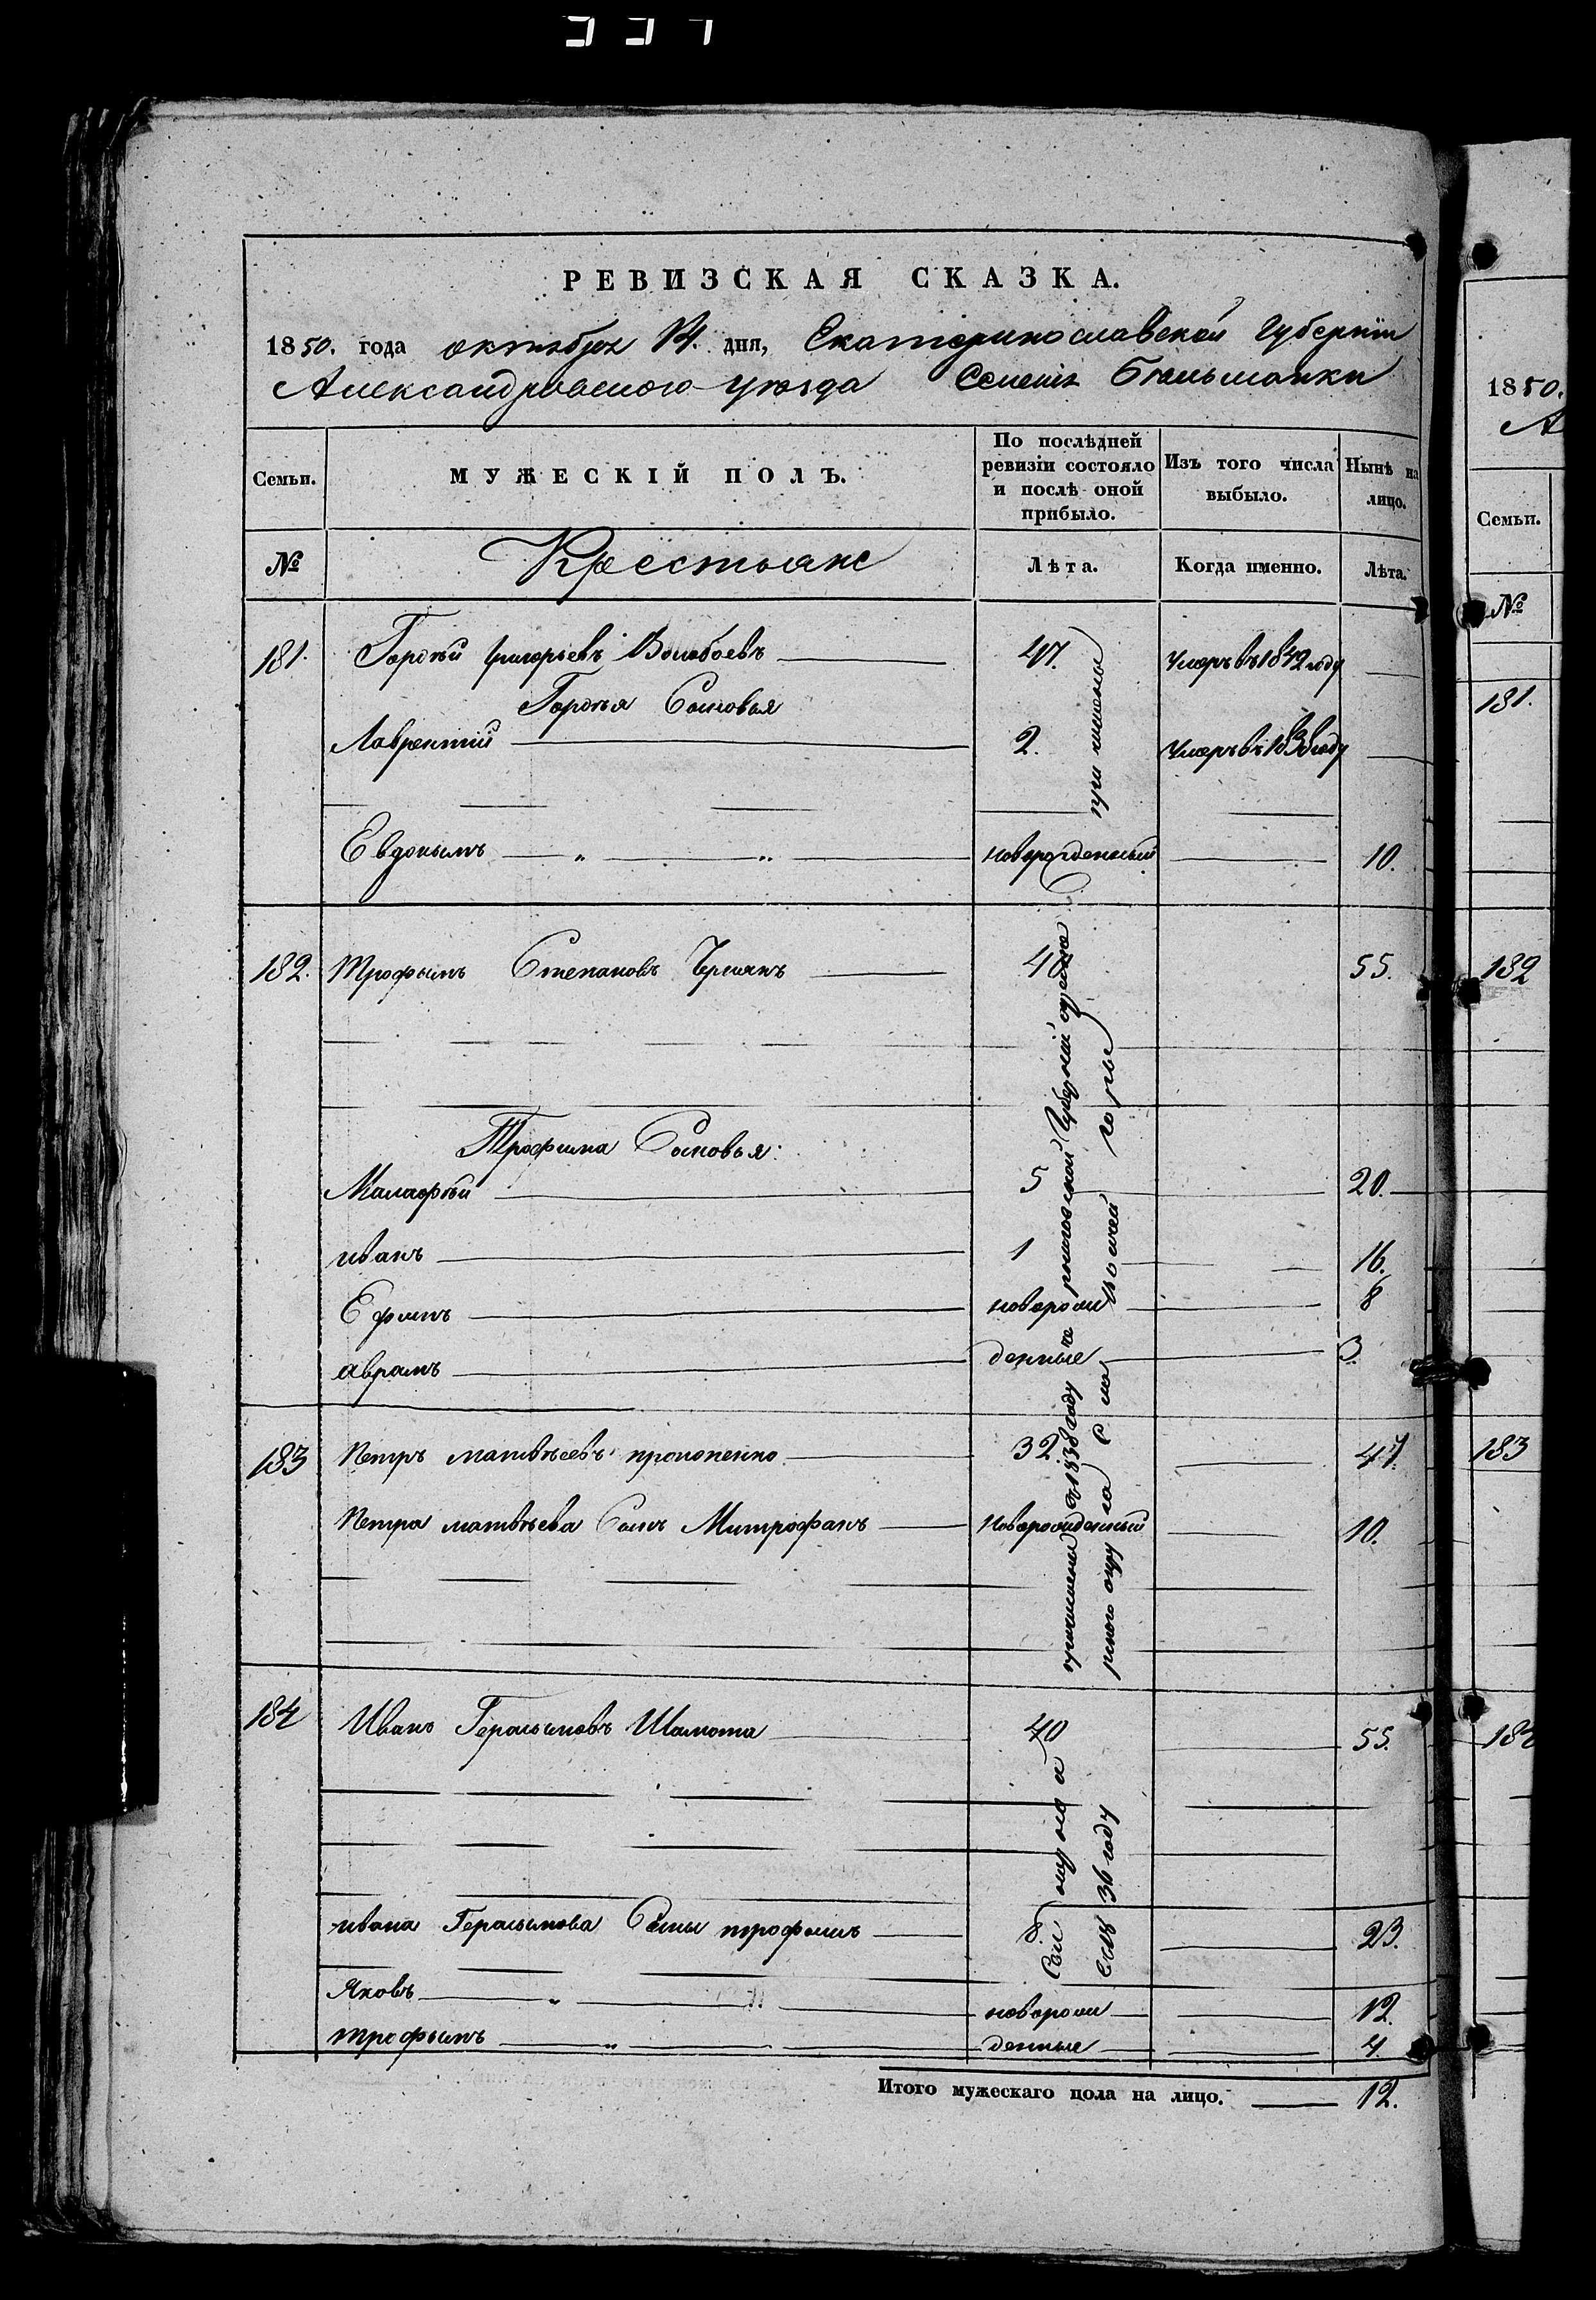 РЕВИЗСКАЯ СКАЗКА.
1850. года октября 14. дня, Екатеринославской Губернiи
Александровского уѣзда Селенiя Бѣльманки
Семьи.
МУЖЕСКIЙ ПОЛЪ.
По послѣдней ревизiи состояло и послѣ оной прибыло.
Изъ того числа выбыло.
Нынѣ на лицо.
№
Крестьяне
Лѣта.
Когда именно.
Лѣта.
181. Гордѣй Григорьевъ 47. Умеръ въ 1842 году
Гордѣя Сыновья
Лаврентiй 2. Умеръ въ году
Евдокымъ " " новорожденный 10.
182. Трофымъ Степановъ 40 55.
Трофима Сыновья:
Малафѣй 5 20.
иванъ 1 16.
Ефимъ новорож 8
аврамъ денные 3.
183 Петръ матвѣевъ прокопенко 32. 47.
Петра матвѣева Сынъ Митрофанъ Новорожденный 10.
184 Иванъ Герасымовъ Шамота 40 55.
ивана Герасымова Сыны трофымъ 8. 23.
Яковъ " новорож 12.
трофымъ " денные 4.
Итого мужескаго пола на лицо. 12.
причислены
въ 1838 году
36 году
1850.
А
Семьи.
№
181.
182
183
184